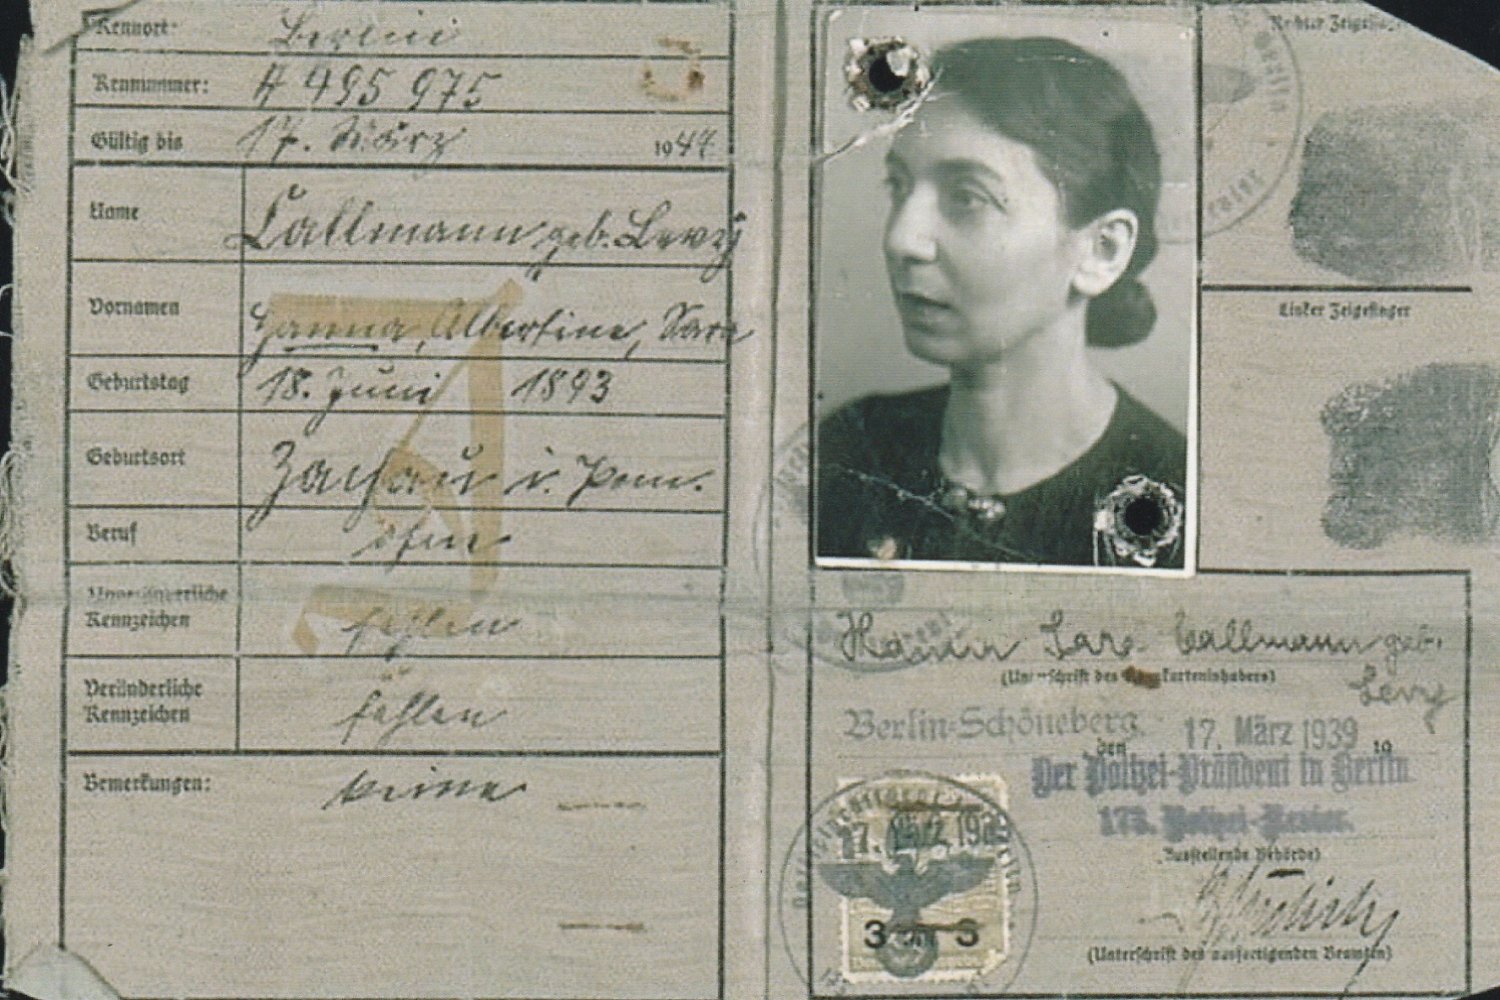 Kennort: Berlin
Kennummer: A 495 975
Gültig bis 17. März 1944
Name Callmann geb. Levy
Vornamen Hanna, Albertine, Sara
Geburtstag 18. Juni 1893
Geburtsort Zachau i. Pom.
Beruf ohne
Unveränderliche
Kennzeichen fehlen
Veränderliche
Kennzeichen fehlen
Bemerkungen: keine
Rechter Zeigefinger
Linker Zeigefinger
Hanna Sara Callmann geb.
Levy
(Unterschrift des Kennkarteninhabers)
Berlin-Schöneberg, den 17. März 1939 19
Der Polizei-Präsident in Berlin
173. Polizei-Revier.
(Ausstellende Behörde)
17. März 19
3 3
(Unterschrift des ausfertigenden Beamten)